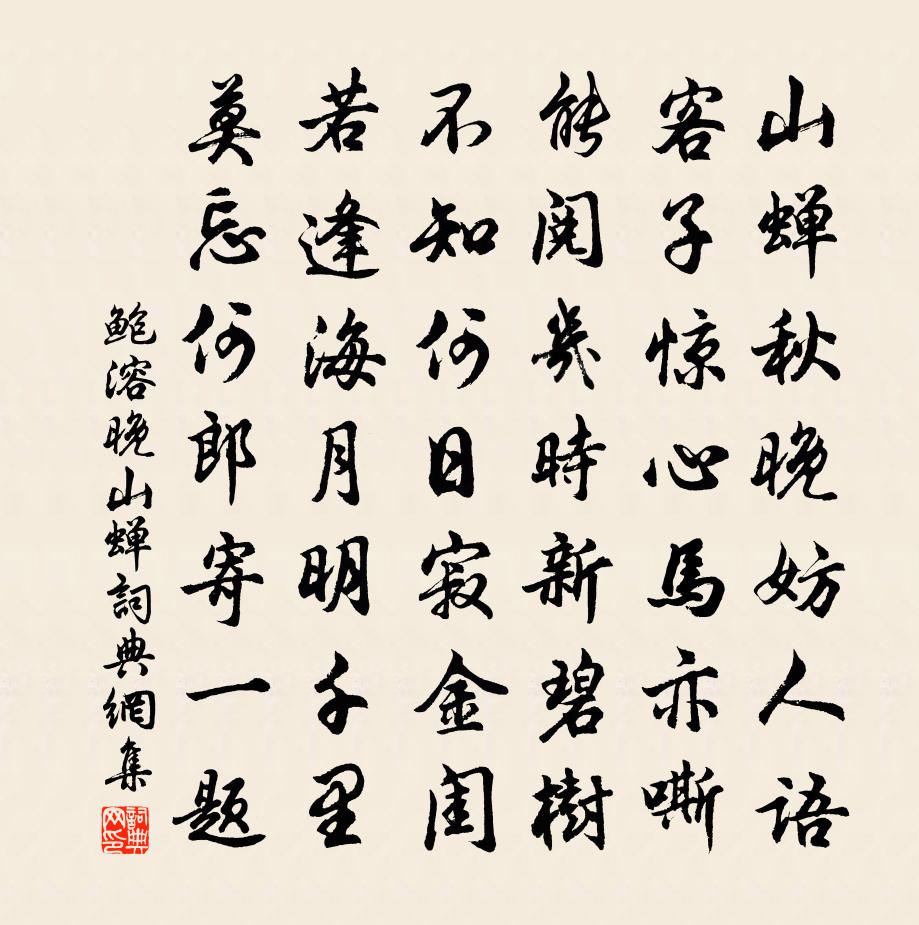 山蝉秋晚妨人语
客子惊心馬亦嘶
能閱幾時新碧樹
不知何日寂金閨
若逢海月明千里
莫忘何郎寄一题
鲍溶晚山蝉詞典網集
詞典网印